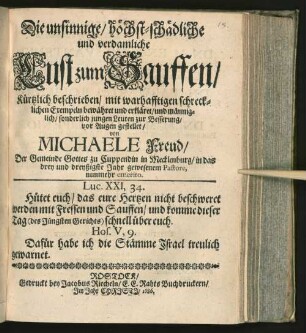 Die unsinnige/ höchst-schädliche
und verdamliche
Lust zum Sauffen/
Kürtzlich beschrieben/ mit warhafftigen schreck-
lichen Exempeln bewähret und erkläret/ und männig-
lich/ sonderlich jungen Leuten zur Besserung/
vor Augen gestellet/
von
MICHAELE Freud/
Der Gemeinde Gottes zu Cuppendin in Mecklenburg/ in das
drey und dreyßigste Jahr gewesenem Pastore,
nunmehr emerito.
Luc. XXI, 34.
Hütet euch/ das eure Hertzen nicht beschweret
werden mit Fressen und Sauffen/ und komme dieser
Tag (des Jüngsten Gerichts) schnell über euch.
Hos. V, 9.
Dafür habe ich die Stämme Israel treulich
gewarnet.
ROSTOCK/
Gedruckt bey Jacobus Riecheln/ E. E. Rahts Buchdruckern/
Im Jahr CHRISTI/ 1686.